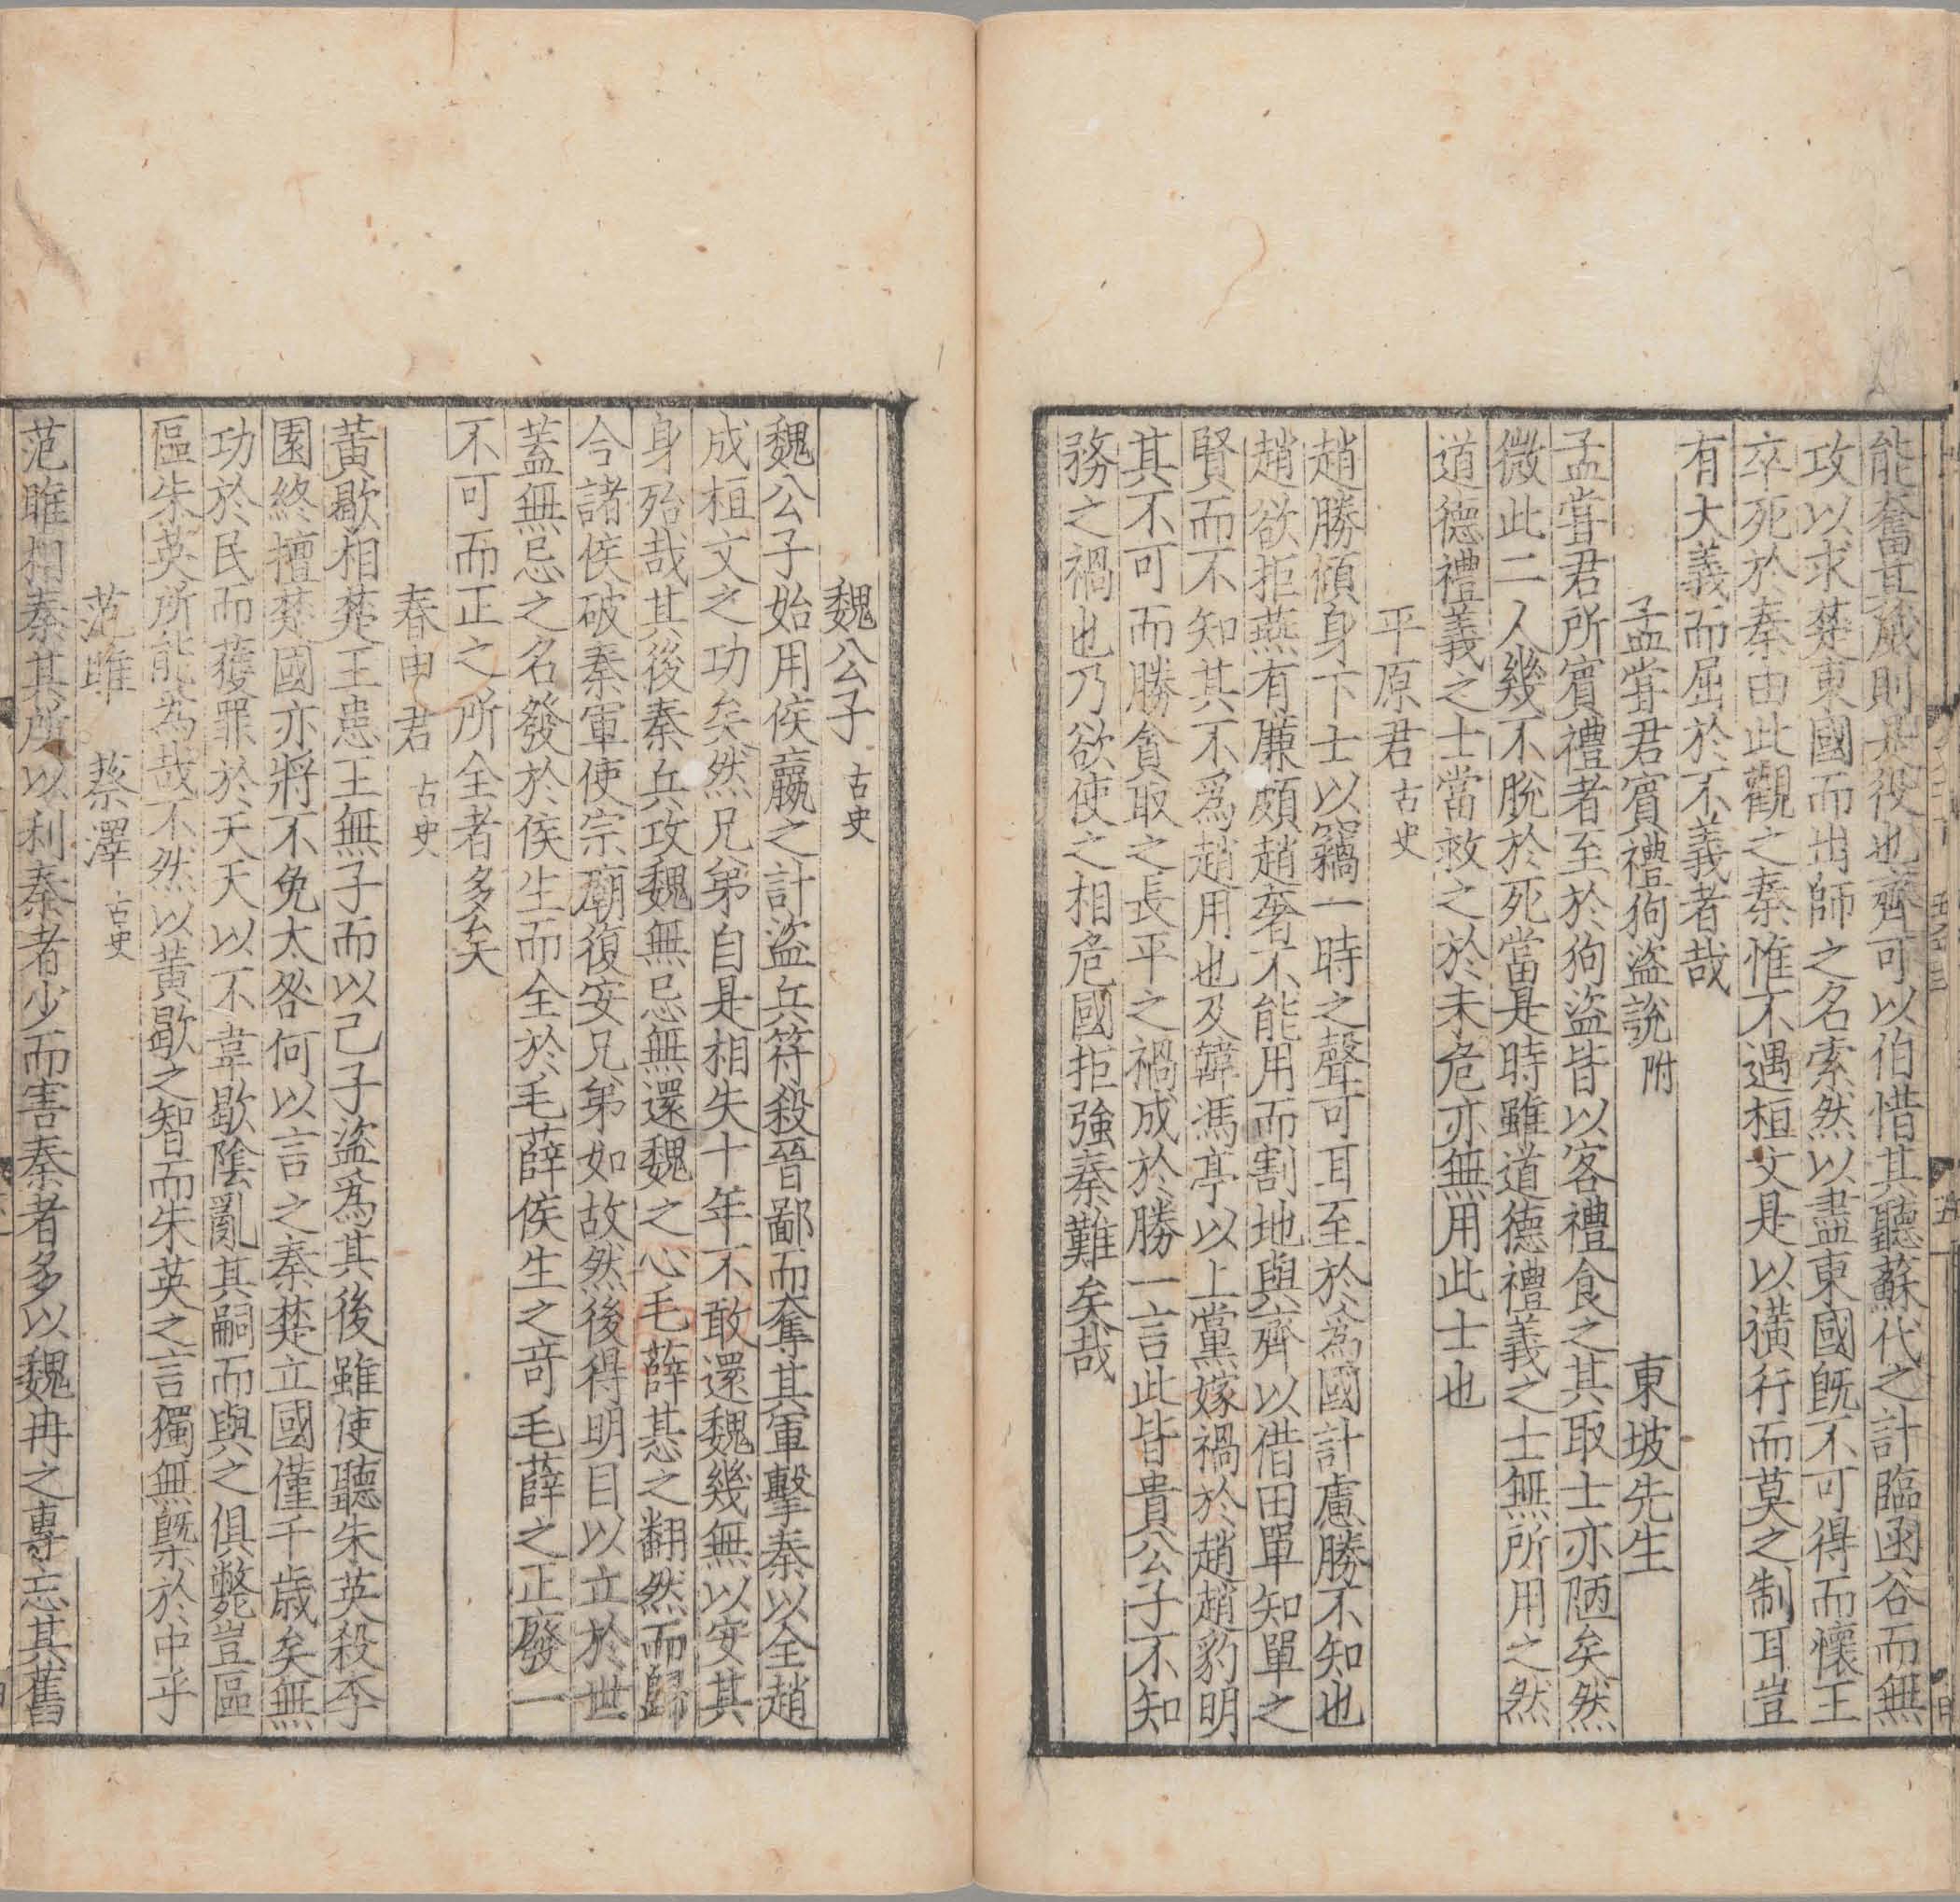 能奮其威則是役也齊可以伯惜其聽蘇代之計臨函谷而無
攻以求楚東國而出師之名索然以盡東國旣不可得而懷王
卒死於秦由此觀之秦惟不遇桓文是以橫行而莫之制耳豈
有大義而屈於不義者哉
孟甞君賓禮狗盜說附 東坡先生
孟甞君所賓禮者至於狗盜皆以客禮食之其取士亦陋矣然
微此二人幾不脫於死當是時雖道德禮義之士無所用之然
道德禮義之士當救之於未危亦無用此士也
平原君 古史
趙勝傾身下士以竊一時之聲可耳至於爲國計慮勝不知也
趙欲拒燕有廉頗趙奢不能用而割地與齊以借田單知單之
賢而不知其不爲趙用也及韓馮亭以上黨嫁禍於趙趙豹明
其不可而勝貪取之長平之禍成於勝一言此皆貴公子不知
務之禍也乃欲使之相危國拒強秦難矣哉
魏公子 古史
魏公子始用侯嬴之計盜兵符殺晉鄙而奪其軍擊秦以全趙
成桓文之功矣然兄弟自是相失十年不敢還魏幾無以安其
身殆哉其後秦兵攻魏無忌無還魏之心毛薛惎之翻然而歸
合諸侯破秦軍使宗廟復安兄弟如故然後得明目以立於世
蓋無忌之名發於侯生而全於毛薛侯生之奇毛薛之正廢一
不可而正之所全者多矣
春申君 古史
黃歇相楚王患王無子而以己子盜爲其後雖使聽朱英殺李
園終擅楚國亦將不免大咎何以言之秦楚立國僅千歲矣無
功於民而獲罪於天天以不韋歇陰亂其嗣而與之俱斃豈區
區朱英所能為哉不然以黃歇之智而朱英之言獨無槩於中乎
范雎 蔡澤 古史
范雎相秦其所以利秦者少而害秦者多以魏冉之專忘其舊